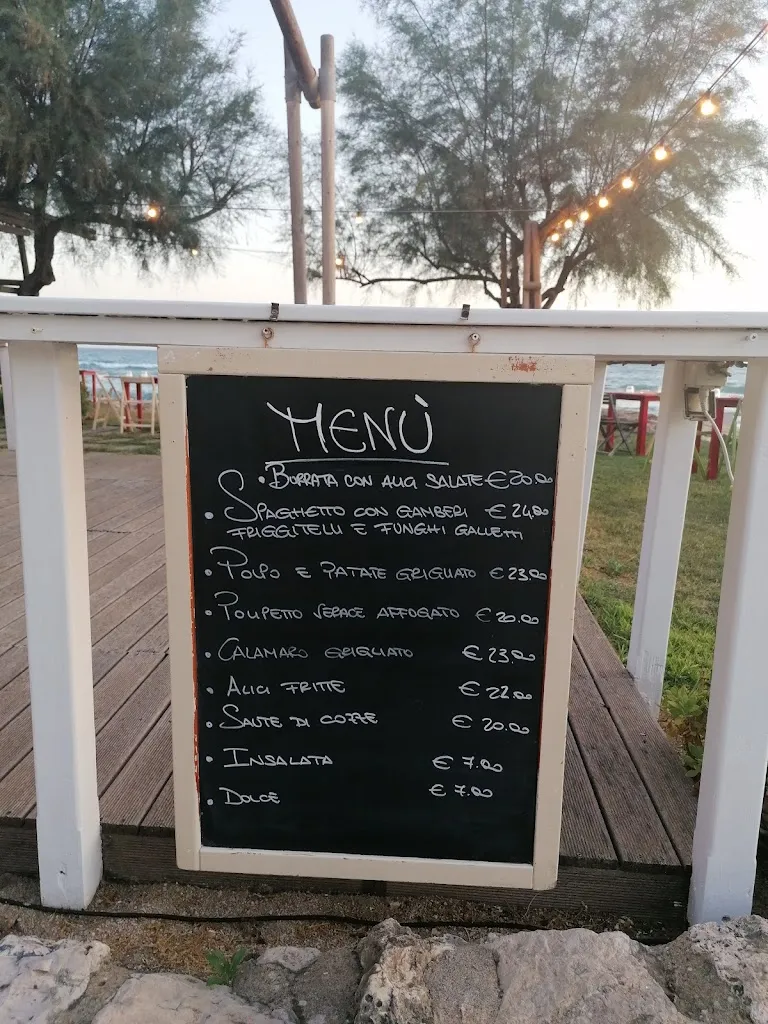 MENÙ
• BURRATA CON ALICI SALATE € 20.00
• SPAGHETTO CON GAMBERI € 24.00
FRIGGITELLI E FUNGHI GALLETTI
• POLPO E PATATE GRIGLIATO € 23.00
• POLIPETTO VERACE AFFOGATO € 20.00
• CALAMARO GRIGLIATO € 23.00
• ALICI FRITTE € 22.00
• SAUTE DI COZZE € 20.00
• INSALATA € 7.00
• DOLCE € 7.00